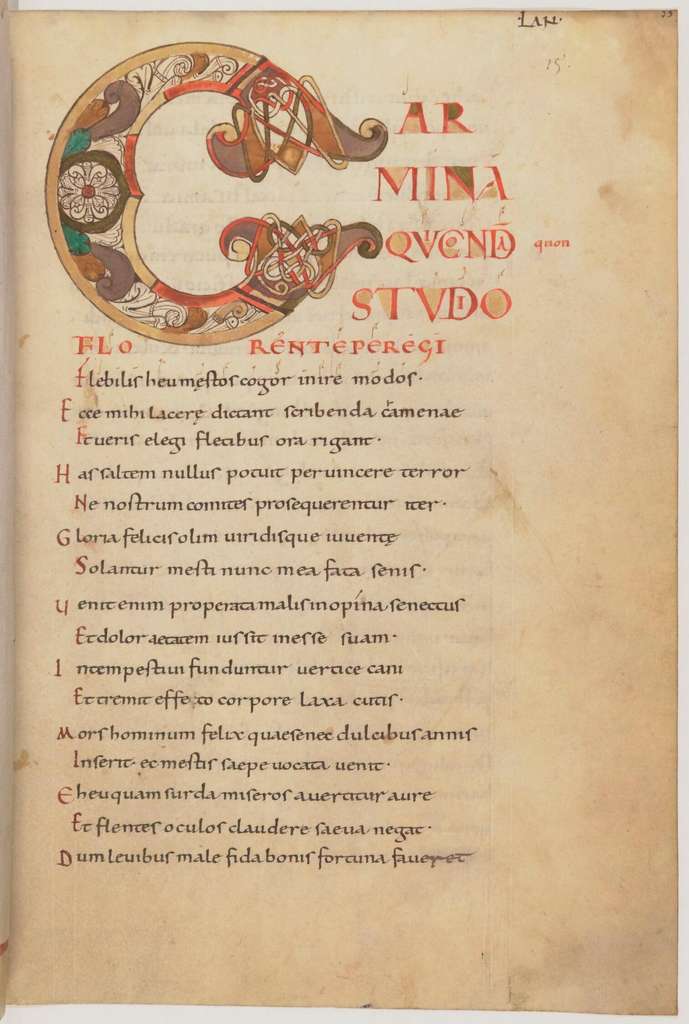 LAN·
33
15'.
CAR
MINA
QVĒNDĀ quon
STVDIO
FLORENTE PEREGI
Flebilis heu męstos cogor inire modos·
Ecce mihi lacerę dictant scribenda camenae
Et ueris elegi fletibus ora rigant·
Has saltem nullus potuit peruincere terror
Ne nostrum comites prosequerentur iter·
Gloria felicis olim uiridisque iuuentę
Solantur mesti nunc mea fata senis·
Venit enim properata malis inopina senectus
Et dolor aetatem iussit inesse suam·
Intempestiui funduntur uertice cani
Et tremit effeto corpore laxa cutis·
Mors hominum felix quae se nec dulcibus annis
Inserit· et mestis saepe uocata uenit·
Eheu quam surda miseros auertitur aure
Et flentes oculos claudere saeua negat·
Dum leuibus male fida bonis fortuna faueret